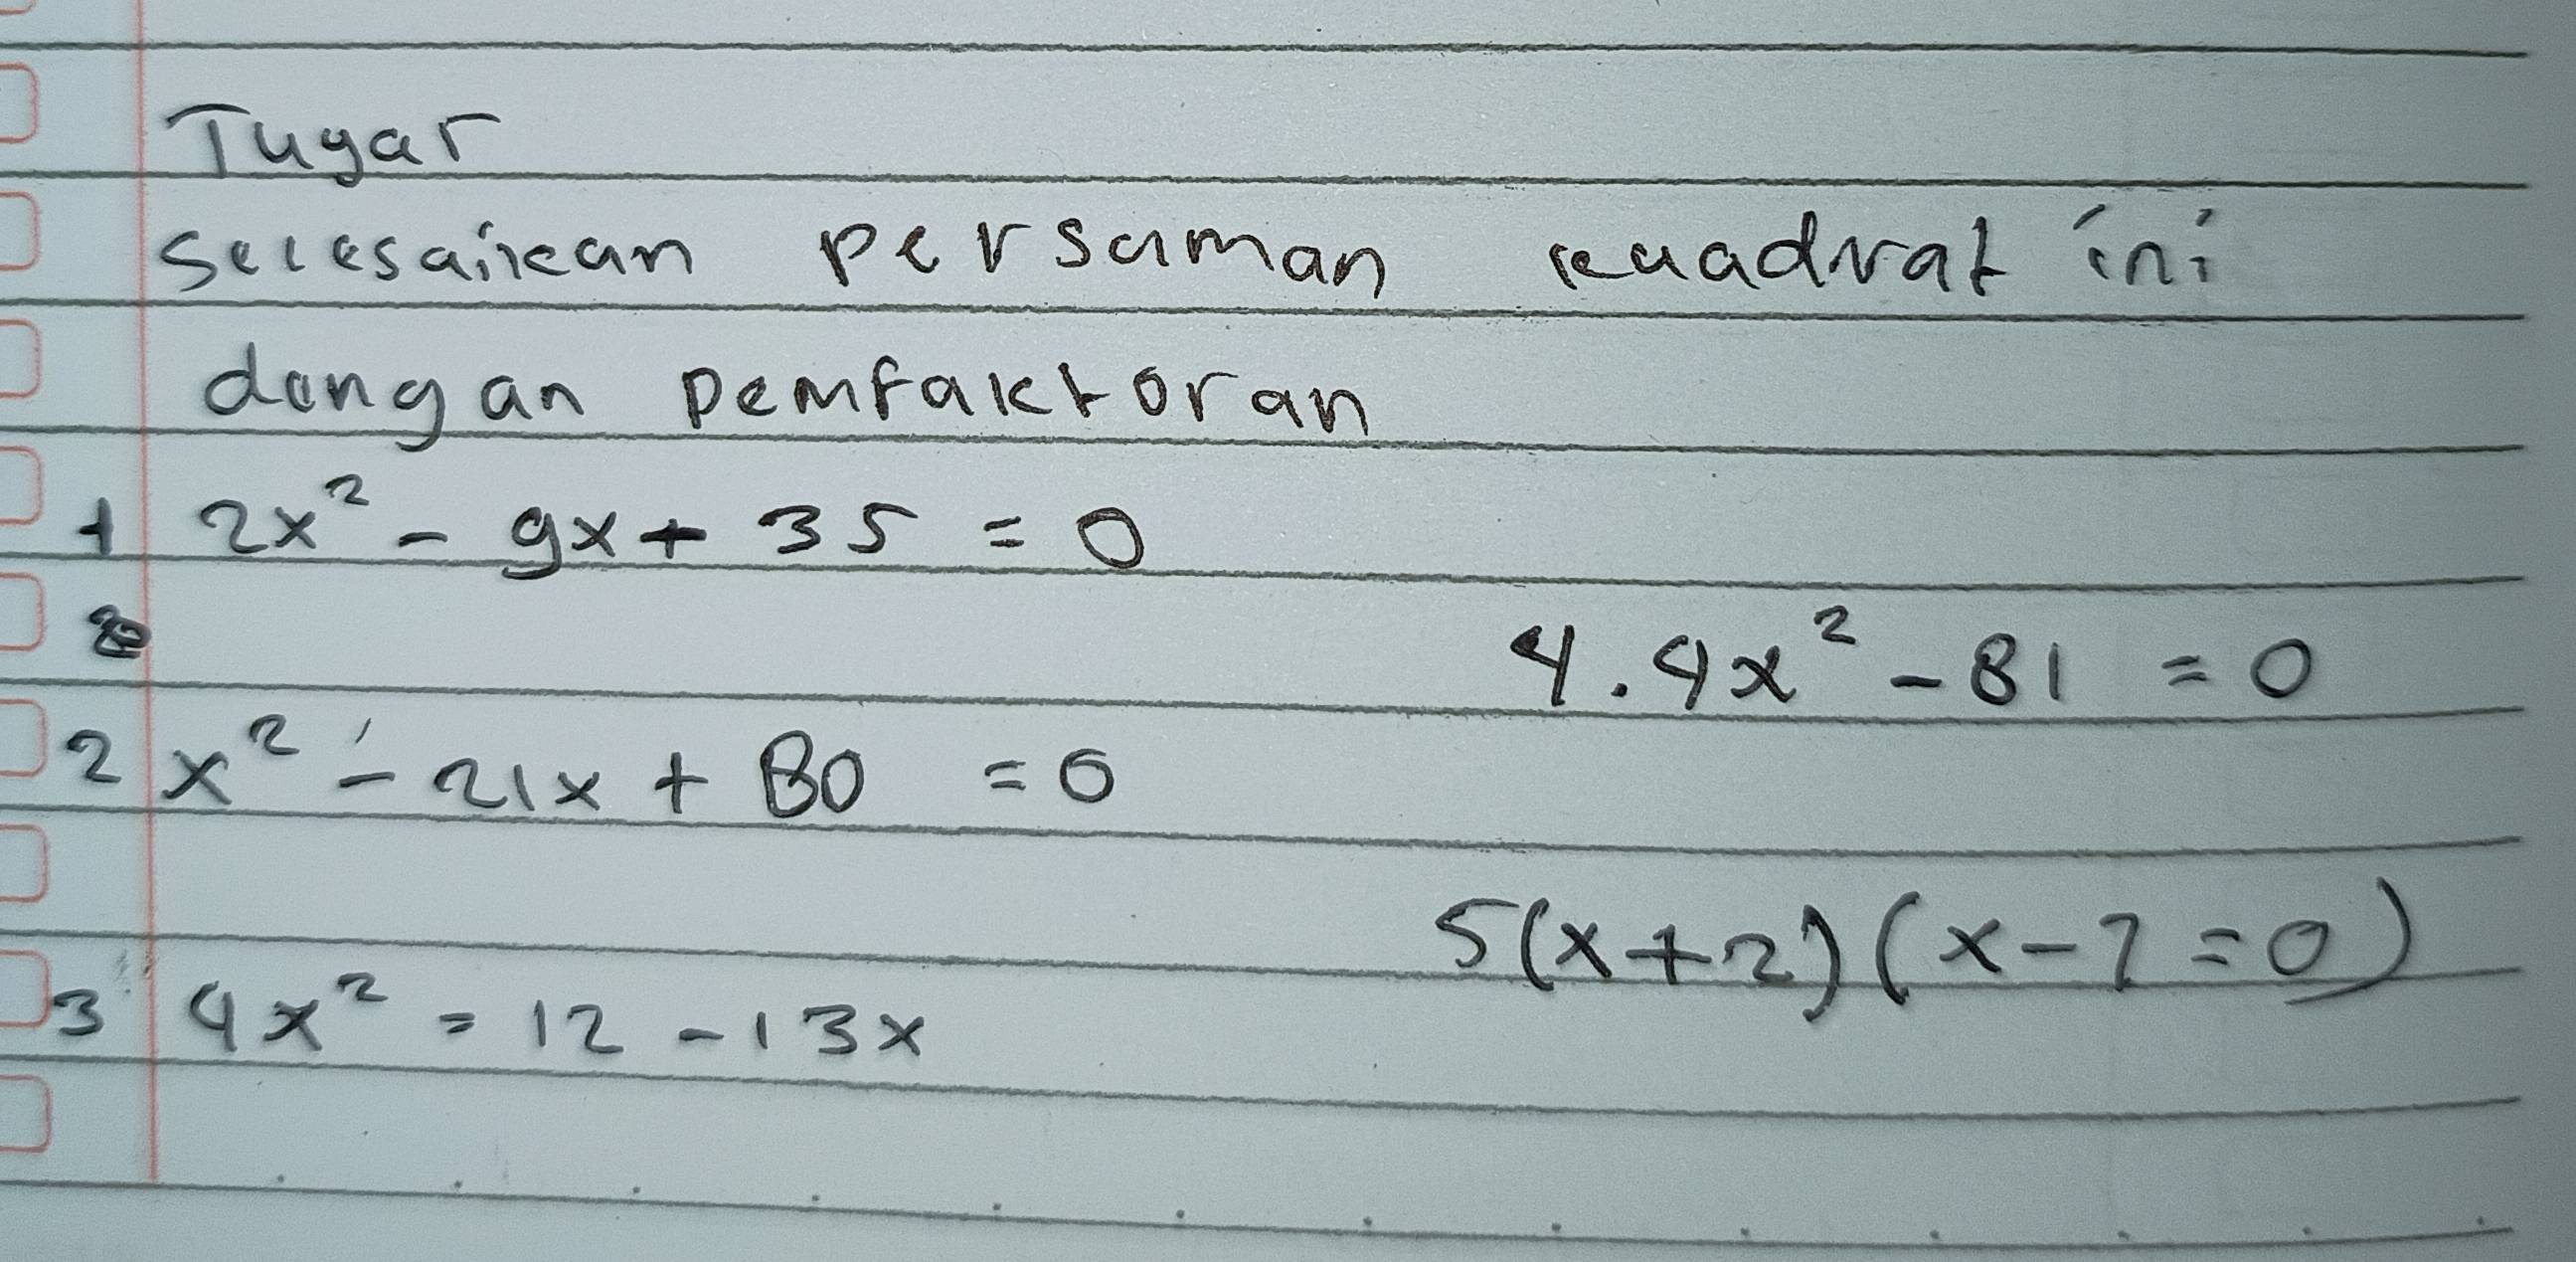 Tugas
Selesaikan persaman kuadrat ini
dengan pemfaktoran
1 2x² - 9x + 35 = 0
4. 4x² - 81 = 0
2 x² - 21x + 80 = 0
5 (x+2) (x-7 = 0)
3 4x² = 12 - 13x